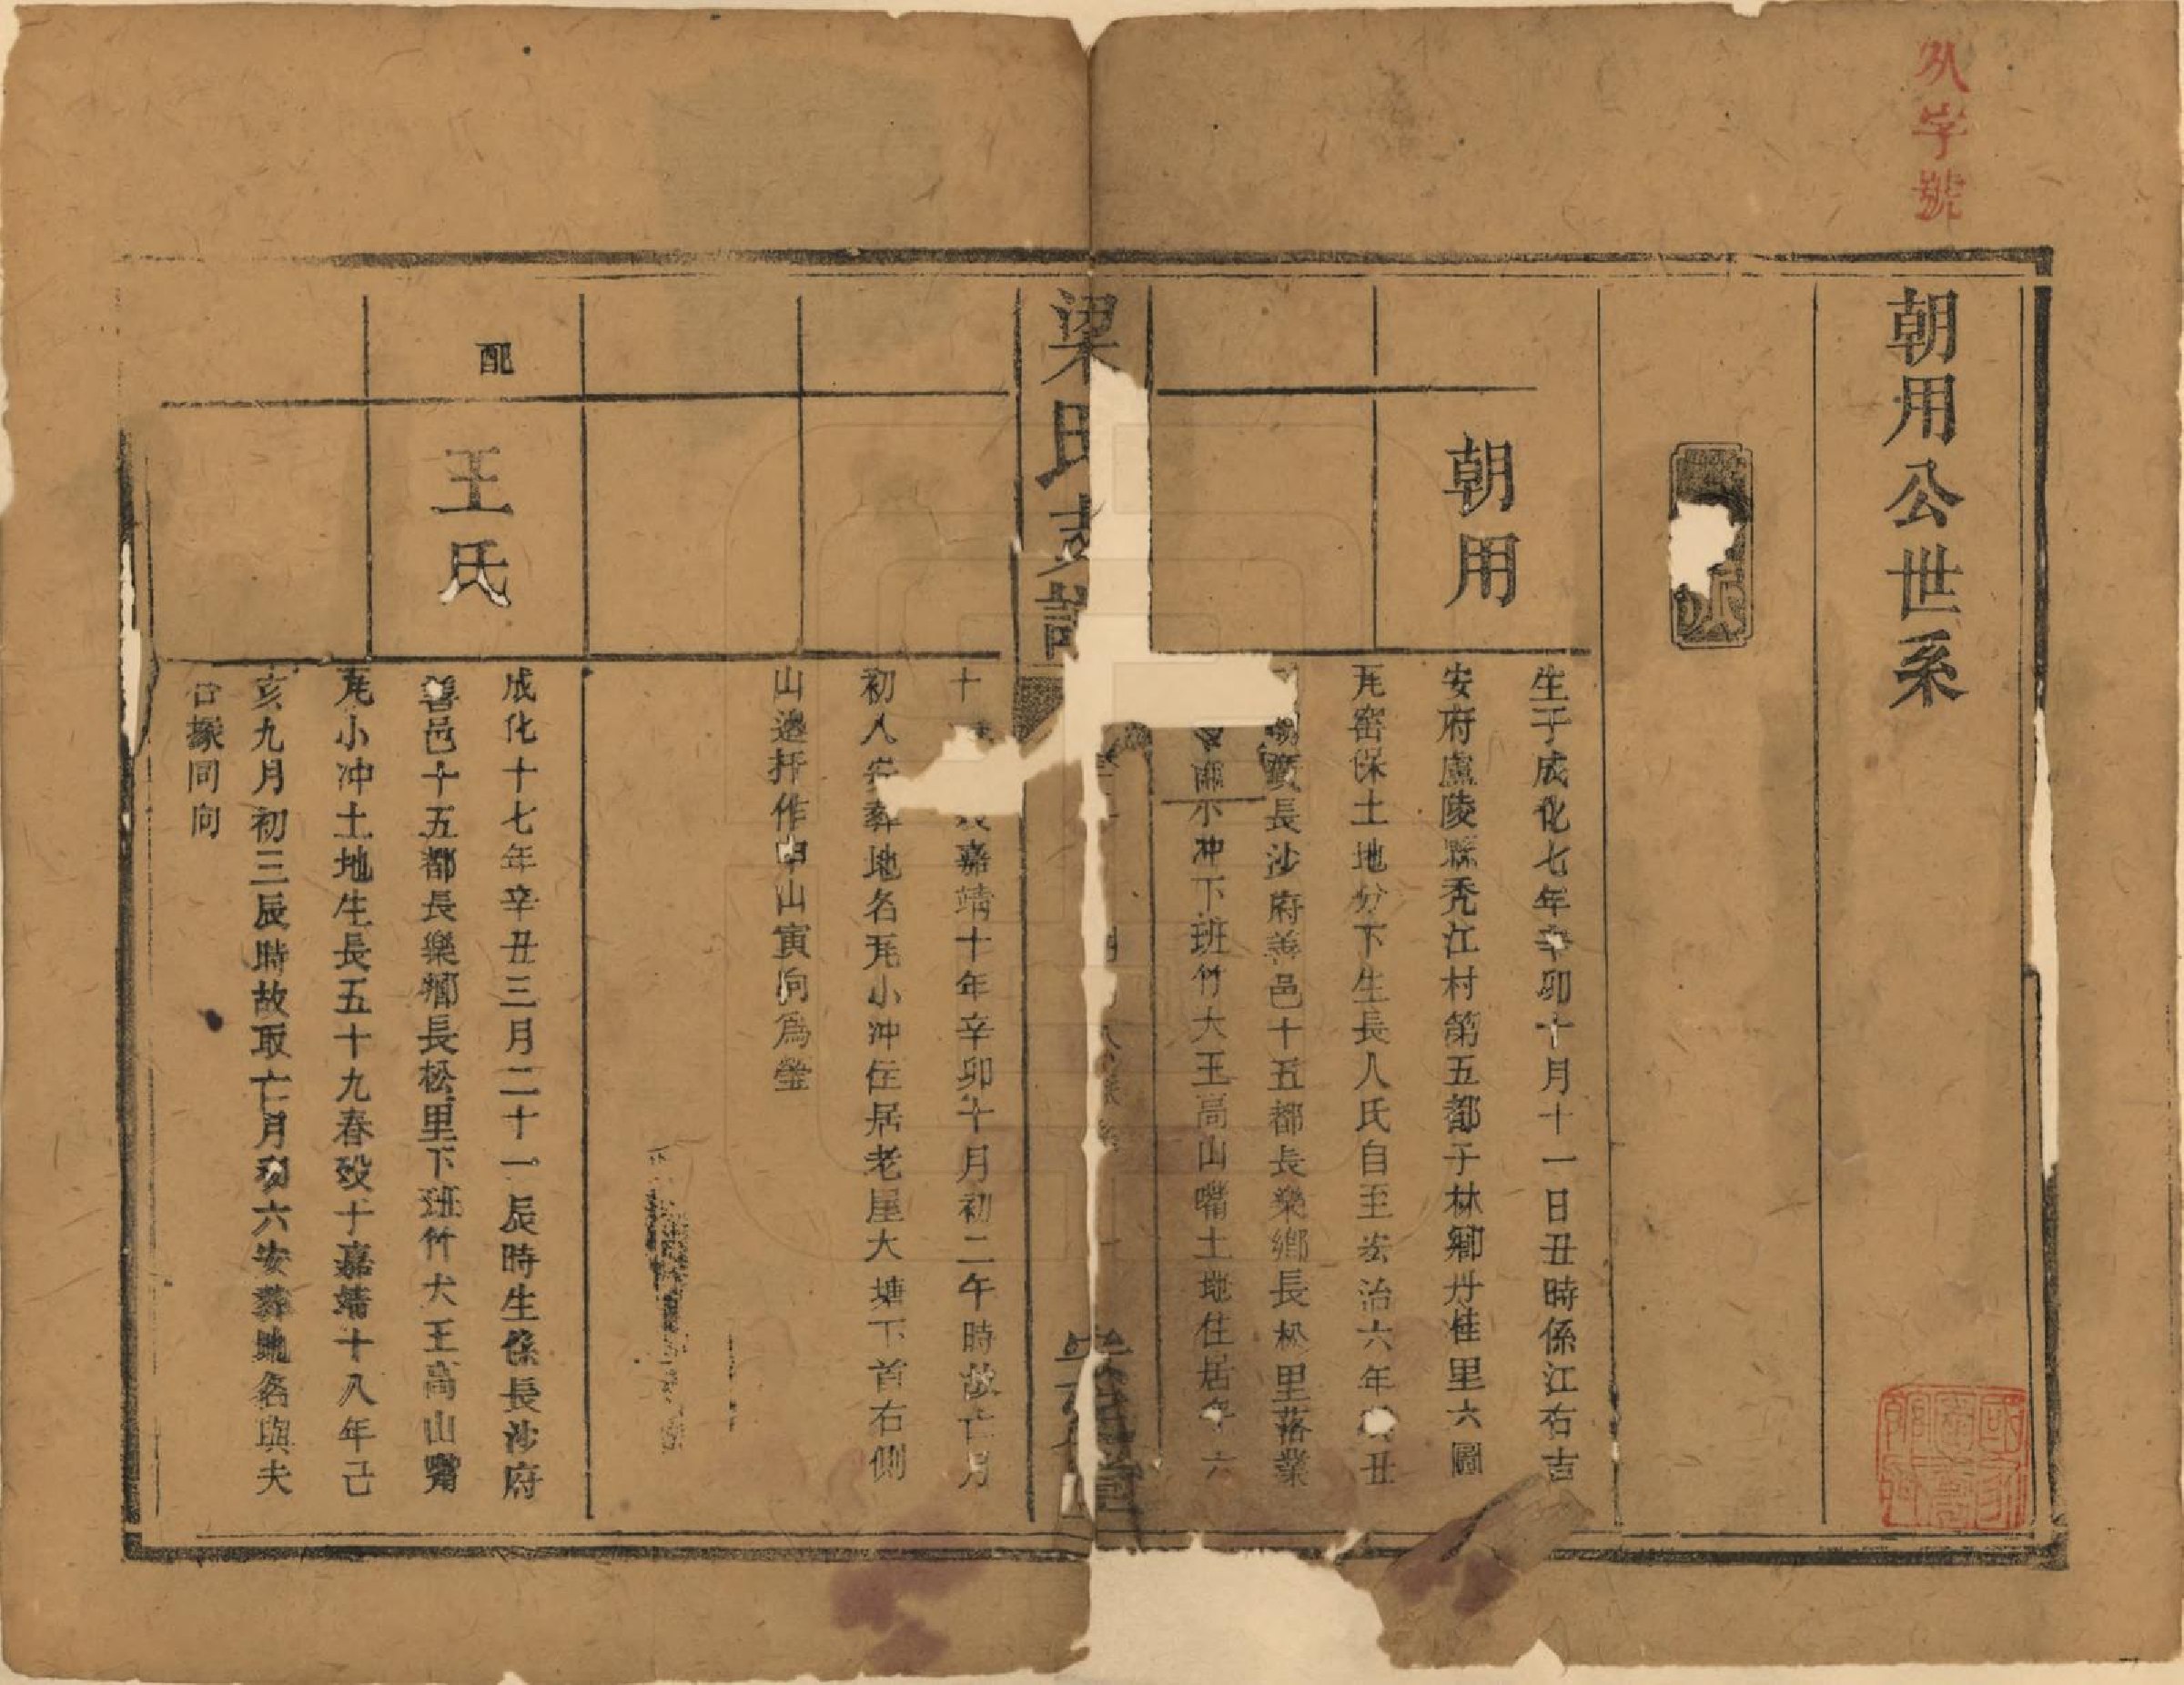 字號
朝用公世系
朝用
生于成化七年辛卯十月十一日丑時係江右吉
安府盧陵縣禿江村第五都于林鄉丹桂里六圖
窑保土地分下生長人氏自至治六年丑
廣長沙府善邑十五都長樂鄉長松里落業
小冲下班竹大王高山嘴土地住居年六
梁氏支譜
十嘉靖十年辛卯十月初二午時故亡月
初八安葬地名小冲住居老屋大塘下首右側
山邊扦作申山寅向為塋
配
王氏
成化十七年辛丑三月二十一辰時生係長沙府
善邑十五都長樂鄉長松里下班竹大王高山嘴
小冲土地生長五十九春歿于嘉靖十八年己
亥九月初三辰時故取亡月初六安葬地名與夫
合塚同向